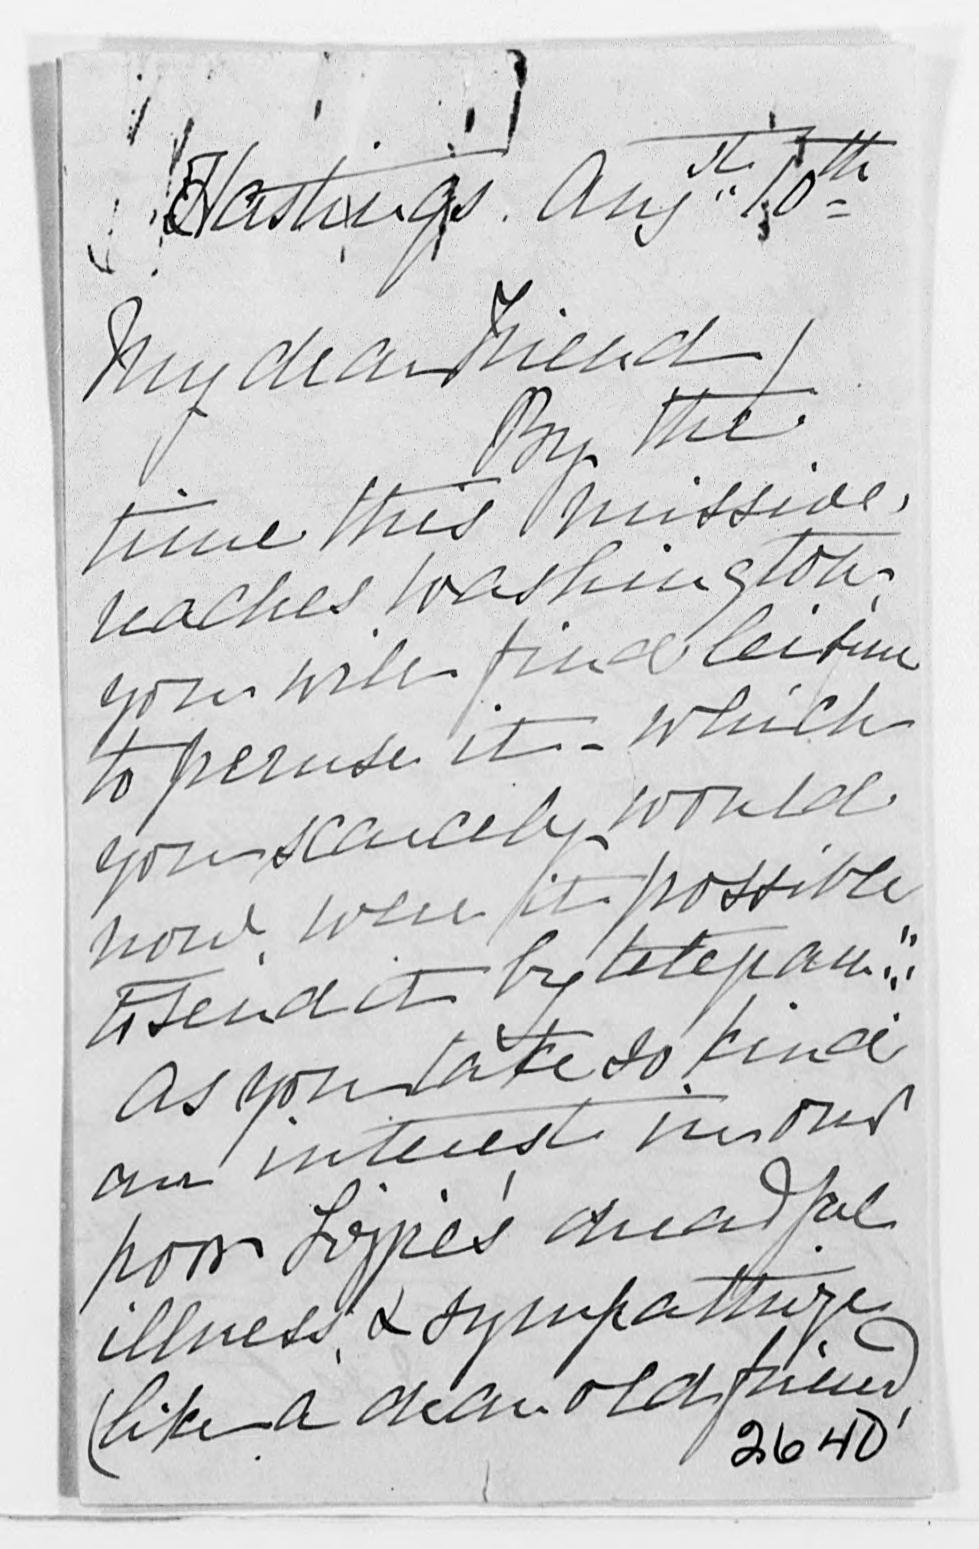 Hastings. Augst: 10th
My dear Friend/
By the
time this missive,
reaches Washington,
you will find leisure
to peruse it - which
you scarcely would
now, were it possible
to send it by
As you take so kind
an interest in our
poor Lizzie's dreadful
illness, & sympathize
(like a dear old friend)
2640